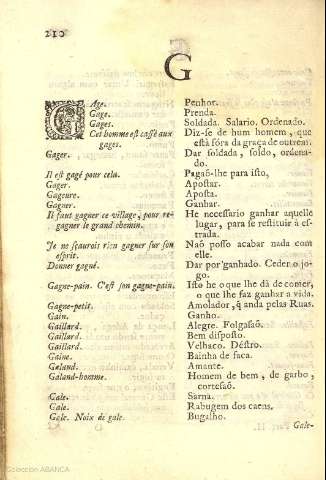 210
G
GAge. Penhor.
Gage. Prenda.
Gages. Soldada. Salario. Ordenado.
Cet homme est cassé aux Diz-se de hum homem, que
gages. está fóra da graça de outrem.
Gager. Dar soldada, soldo, ordena-
do.
Il est gagé pour cela. Pagaõ-lhe para isto,
Gager. Apostar.
Gageure. Aposta.
Gagner. Ganhar.
Il faut gagner ce village, pour re- He necessario ganhar aquelle
gagner le grand chemin. lugar, para se restituir á es-
trada.
Je ne sçaurois rien gagner sur son Naõ posso acabar nada com
esprit. elle.
Donner gagné. Dar por ganhado. Ceder o jo-
go.
Gagne-pain. C'est son gagne-pain. Isto he o que lhe dá de comer,
o que lhe faz ganhar a vida.
Gagne-petit. Amolador, q̃ anda pelas Ruas.
Gain. Ganho.
Gaillard. Alegre. Folgasaõ.
Gaillard. Bem disposto.
Gaillard. Velhaco. Déstro.
Gaine. Bainha de faca.
Galand. Amante.
Galand-homme. Homem de bem, de garbo,
cortesaõ.
Gale. Sarna.
Gale. Rabugem dos caens.
Gale. Noix de gale. Bugalho.
Gale-
Colección ABANCA